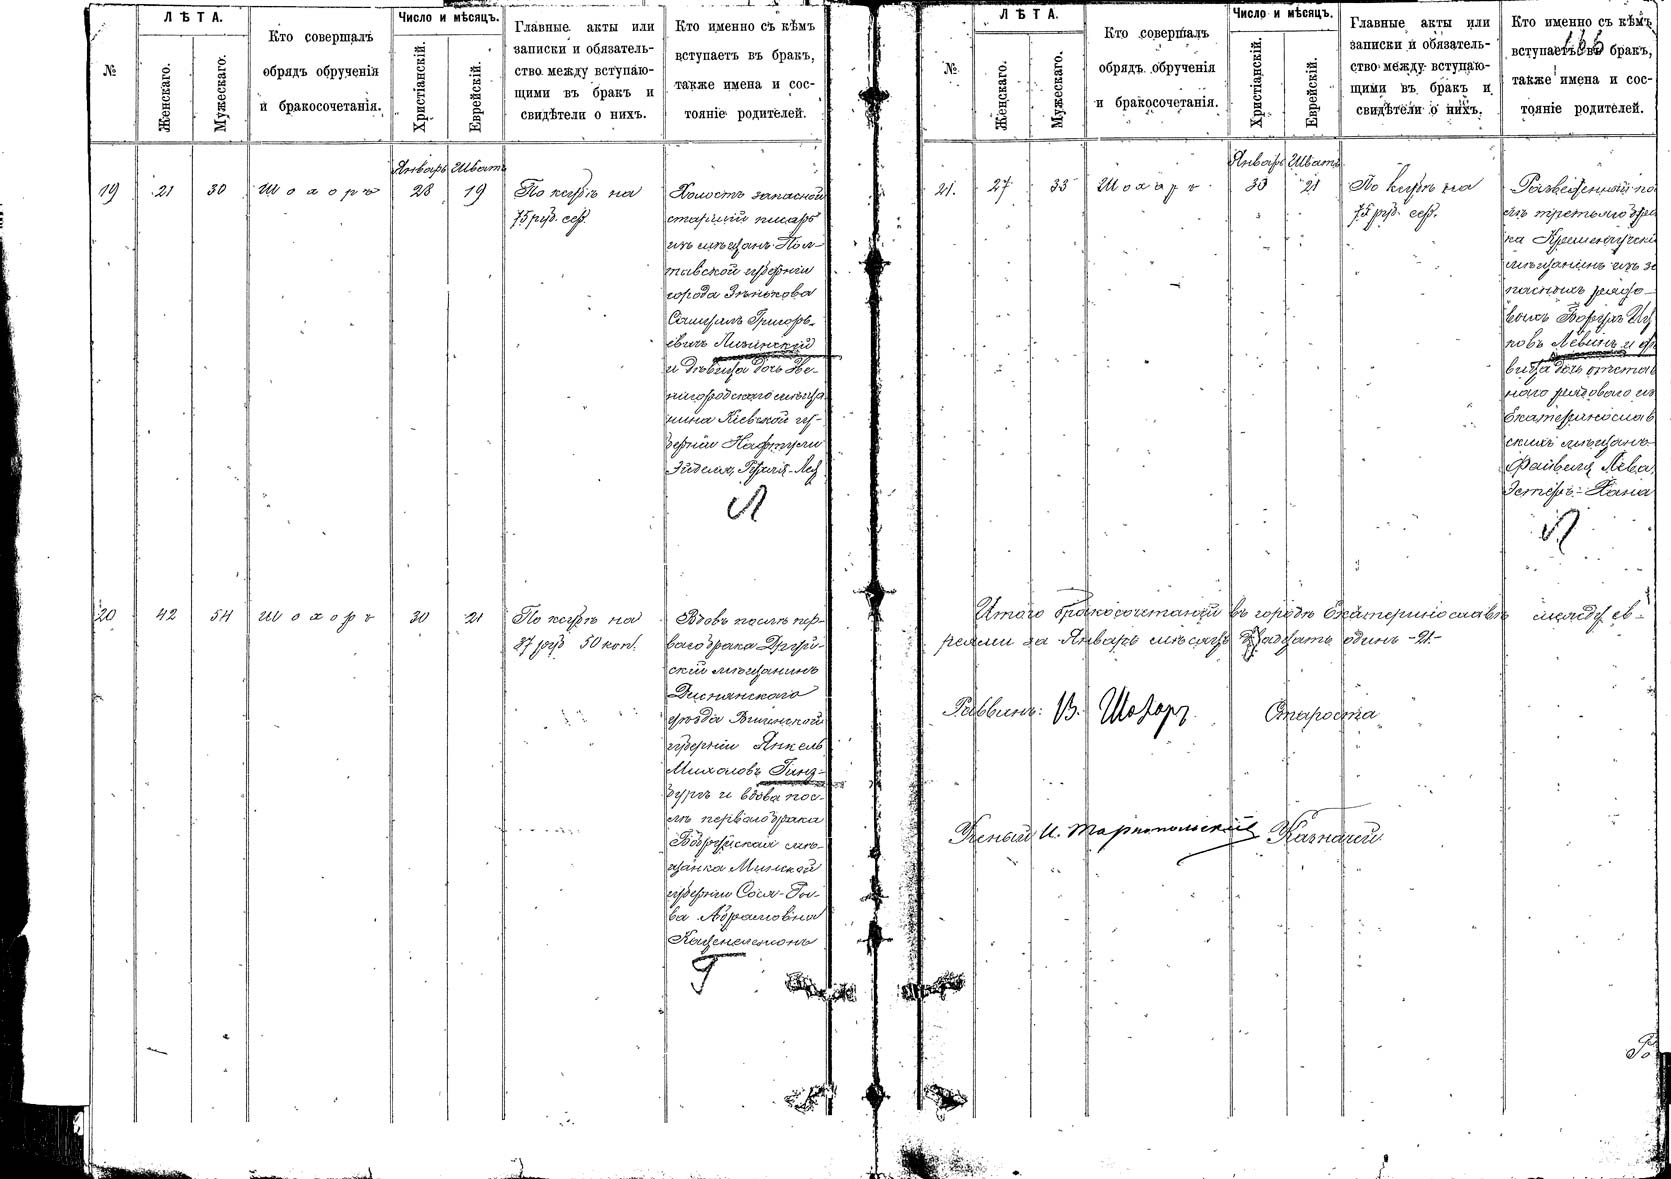 Л Ѣ Т А.
Число и мѣсяцъ.
№
Женскаго.
Мужескаго.
Кто совершалъ
обрядъ обрученія
и бракосочетанія.
Христіанскій.
Еврейскій.
Главные акты или
записки и обязатель-
ство между вступаю-
щими въ бракъ и
свидѣтели о нихъ.
Кто именно съ кѣмъ
вступаетъ въ бракъ,
также имена и сос-
тояніе родителей.
Январь Шватъ
19 21 30 Шохоръ 28 19
По ксубѣ на
75 руб. сер.
Холостъ запасной
старшій писарь
изъ мѣщанъ Пол-
тавской губерніи
города Зѣнькова
Самуилъ Григорь-
евичъ
и дѣвица дочь Зве-
нигородскаго мѣща-
нина Кіевской гу-
берніи Нафтули
Л
20 42 54 Шохоръ 30 21
По ксубѣ на
37 руб 50 коп.
Вдовъ послѣ пер-
ваго брака
скій мѣщанинъ
Диснянскаго
уѣзда Виленской
губерніи Янкель
Михелевъ Гинз-
бургъ и вдова пос-
лѣ перваго брака
Бобруйская мѣ-
щанка Минской
губерніи Сося-
Абрамовна
Каценеленсонъ
Г
Л Ѣ Т А.
Число и мѣсяцъ.
№
Женскаго.
Мужескаго.
Кто совершалъ
обрядъ обрученія
и бракосочетанія.
Христіанскій.
Еврейскій.
Главные акты или
записки и обязатель-
ство между вступаю-
щими въ бракъ и
свидѣтели о нихъ.
Кто именно съ кѣмъ
вступаетъ въ бракъ,
также имена и сос-
тояніе родителей.
Январь Шватъ
21. 27 33 Шохоръ 30 21
По ксубѣ на
75 руб. сер.
Разведенный по
слѣ третьяго бра
ка Кременчугскі
мѣщанинъ изъ за
пасныхъ рядо-
выхъ Борухъ
ковъ Левинъ и дѣ
вица дочь отстав
наго рядового из
Екатеринослав
скихъ мѣщанъ
Файвеля Лева
Эстеръ-Хана
Л
Итого бракосочетаній въ городѣ Екатеринославѣ между ев-
реями за Январь мѣсяцъ двадцать одинъ -21-
Раввинъ: В. Шохоръ Староста
Ученый И. Тарнопольскій Казначей